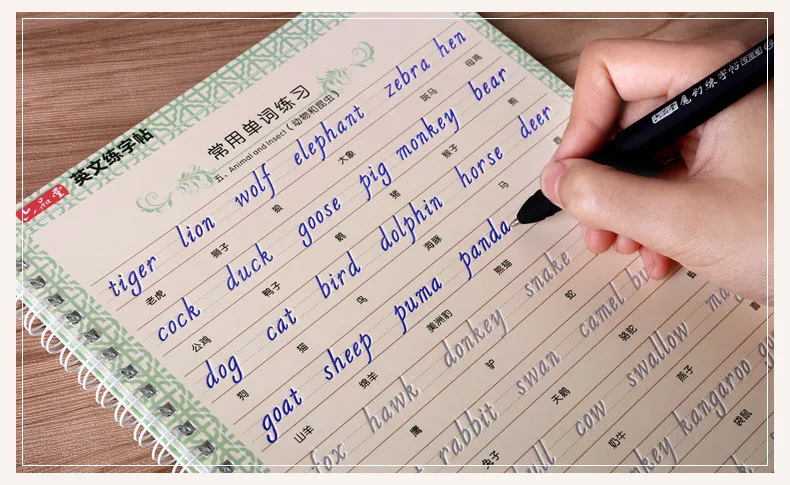 英文练字帖
常用单词练习
五、Animal and insect (动物和昆虫)
tiger lion wolf elephant zebra hen
老虎 狮子 狼 大象 斑马 母鸡
cock duck goose pig monkey bear
公鸡 鸭子 鹅 猪 猴子 熊
dog cat bird dolphin horse deer
狗 猫 鸟 海豚 马
goat sheep puma panda
山羊 绵羊 美洲豹 熊猫
fox hawk donkey snake
鹰 驴 蛇
rabbit swan camel
兔子 天鹅 骆驼
cow swallow
奶牛 燕子
kangaroo
袋鼠
魔幻练字帖